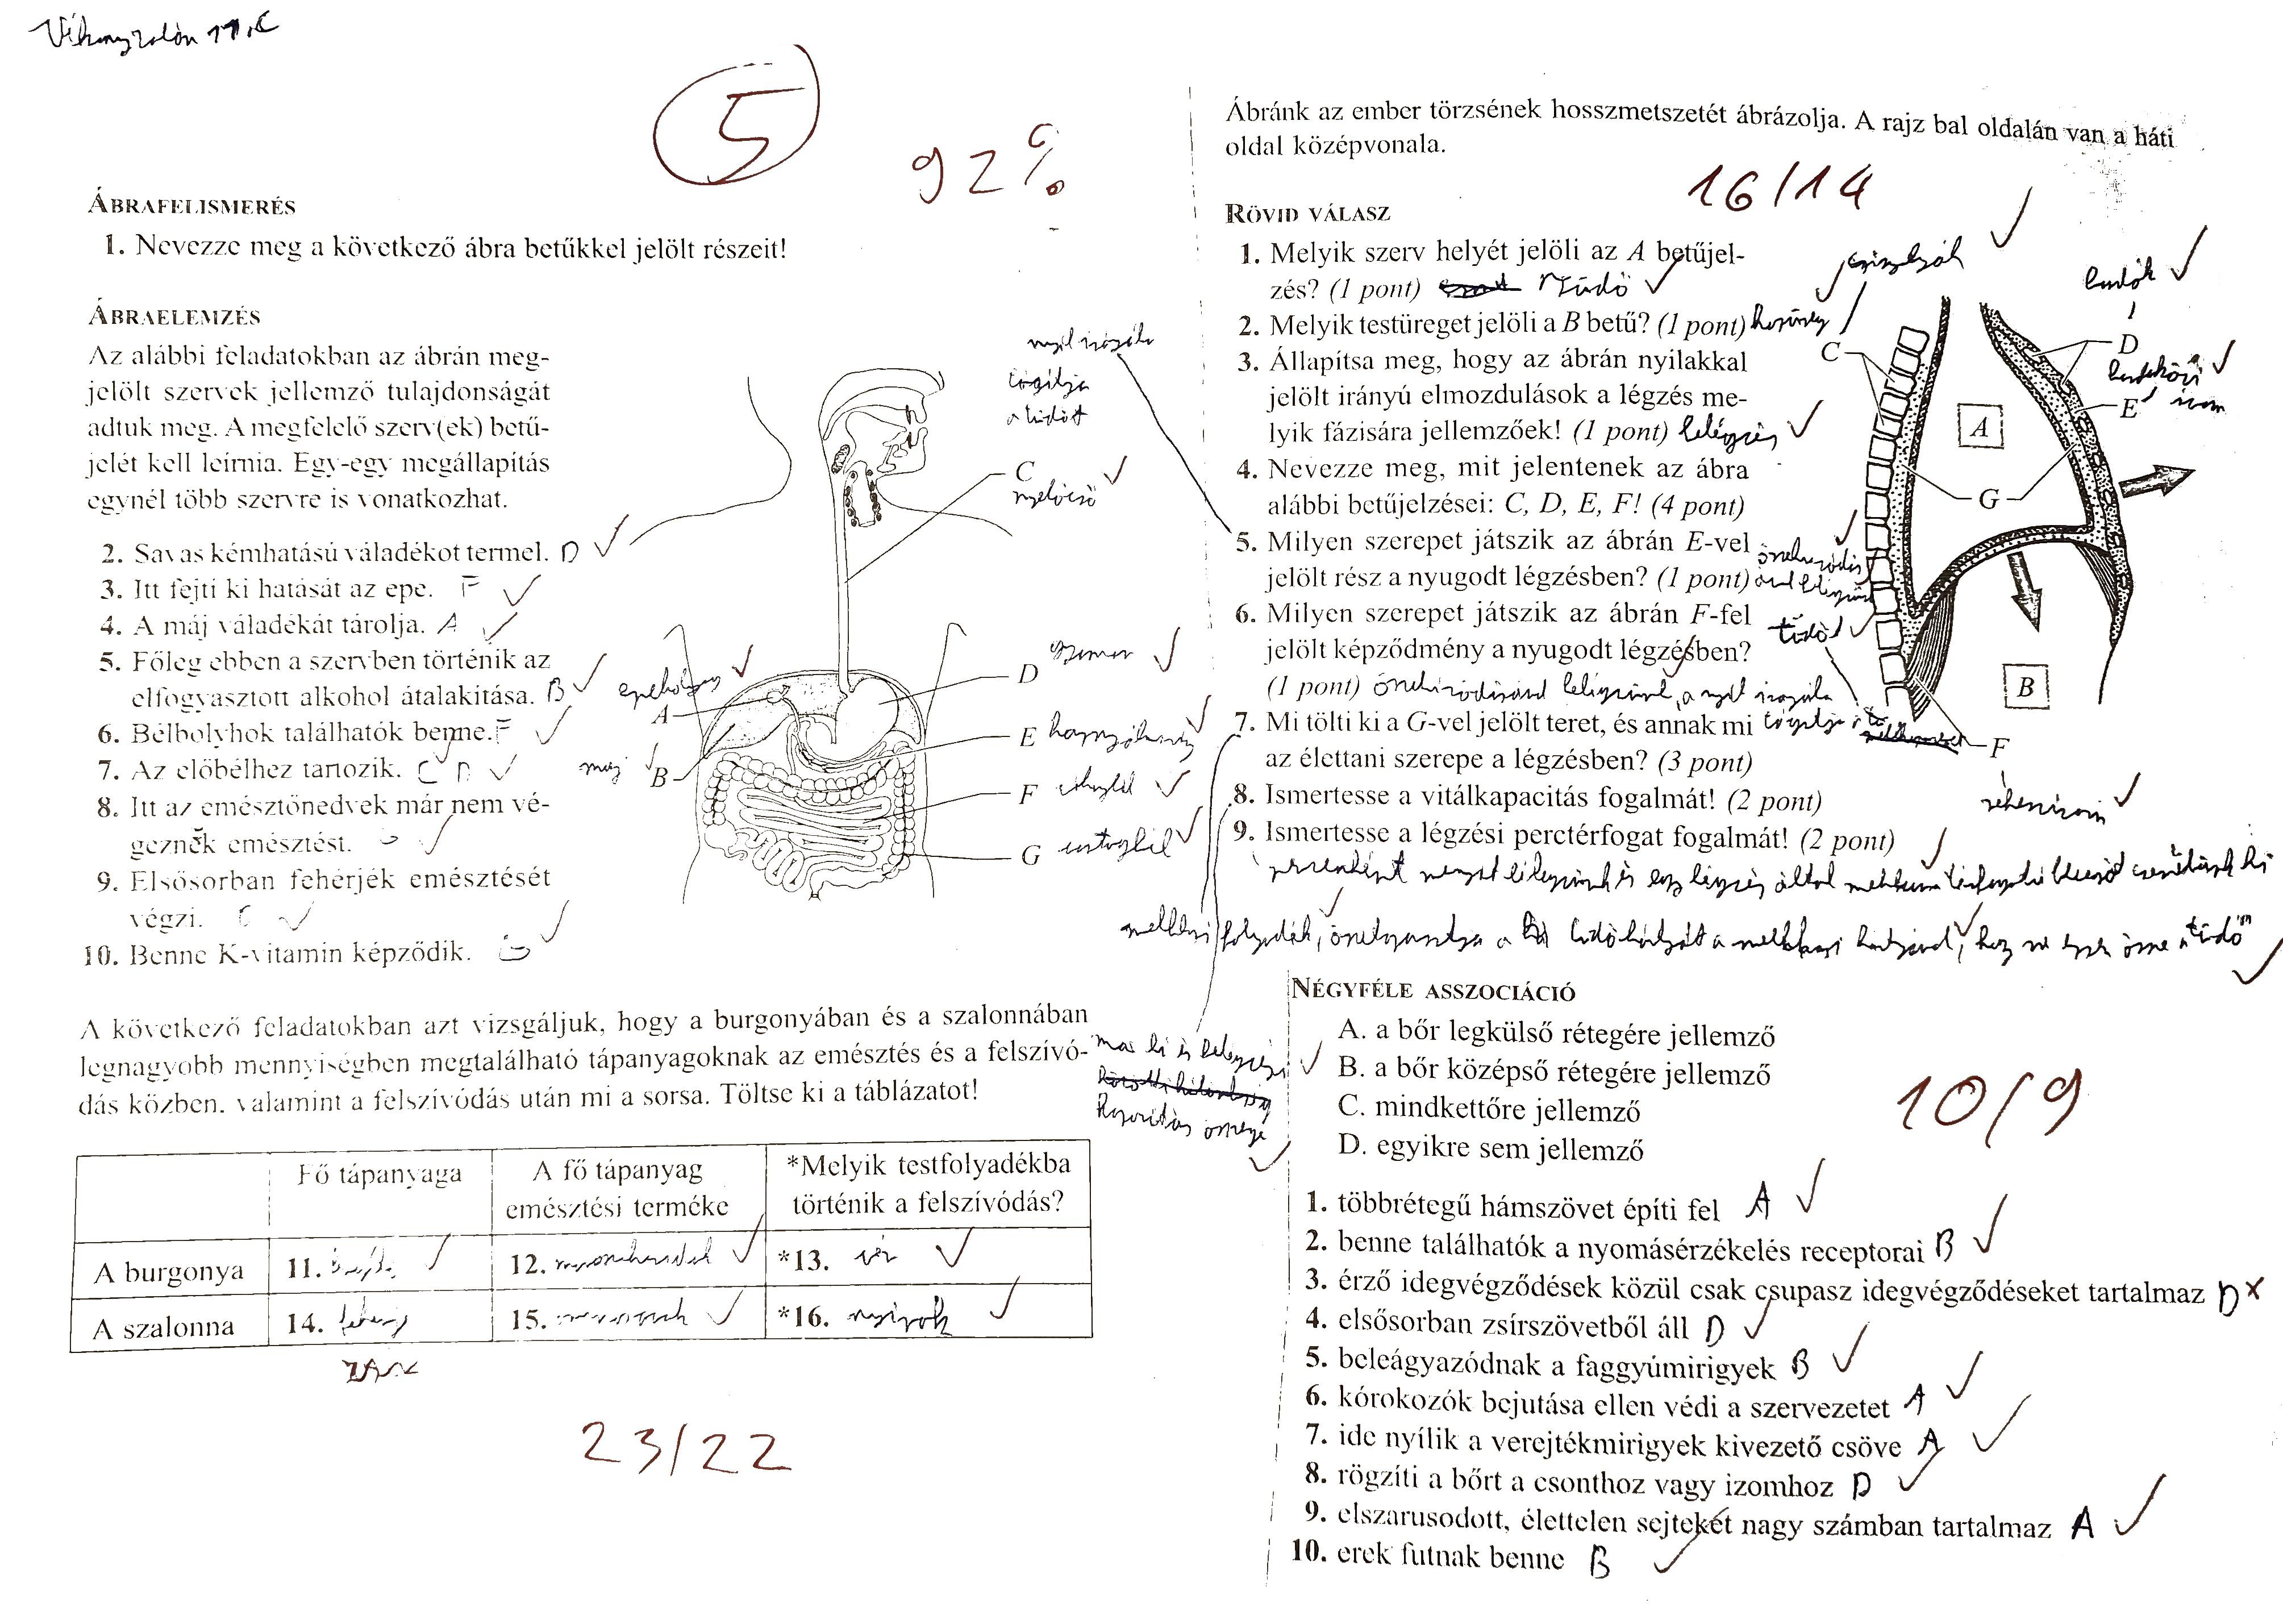 11.C
5
92%
ÁBRAFELISMERÉS
1. Nevezze meg a következő ábra betűkkel jelölt részeit!
ÁBRAELEMZÉS
Az alábbi feladatokban az ábrán meg-
jelölt szervek jellemző tulajdonságát
adtuk meg. A megfelelő szerv(ek) betű-
jelét kell leírnia. Egy-egy megállapítás
egynél több szervre is vonatkozhat.
2. Savas kémhatású váladékot termel. D
3. Itt fejti ki hatását az epe. F
4. A máj váladékát tárolja. A
5. Főleg ebben a szervben történik az
elfogyasztott alkohol átalakítása. B
6. Bélbolyhok találhatók benne. F
7. Az előbélhez tartozik. C D
8. Itt az emésztőnedvek már nem vé-
geznek emésztést. G
9. Elsősorban fehérjék emésztését
végzi.
10. Benne K-vitamin képződik. G
C
nyelőcső
epehólyag
A
máj B
D gyomor
E hasnyálmirigy
F vékonybél
G vastagbél
A következő feladatokban azt vizsgáljuk, hogy a burgonyában és a szalonnában
legnagyobb mennyiségben megtalálható tápanyagoknak az emésztés és a felszívó-
dás közben, valamint a felszívódás után mi a sorsa. Töltse ki a táblázatot!
Fő tápanyaga
A fő tápanyag
emésztési terméke
*Melyik testfolyadékba
történik a felszívódás?
A burgonya 11. 12. *13. vér
A szalonna 14. 15. *16. nyirok
23/22
Ábránk az ember törzsének hosszmetszetét ábrázolja. A rajz bal oldalán van a háti
oldal középvonala.
16/14
RÖVID VÁLASZ
1. Melyik szerv helyét jelöli az A betűjel-
zés? (1 pont) Tüdő
2. Melyik testüreget jelöli a B betű? (1 pont) hasüreg
3. Állapítsa meg, hogy az ábrán nyilakkal
jelölt irányú elmozdulások a légzés me-
lyik fázisára jellemzőek! (1 pont) belégzés
4. Nevezze meg, mit jelentenek az ábra
alábbi betűjelzései: C, D, E, F! (4 pont)
5. Milyen szerepet játszik az ábrán E-vel
jelölt rész a nyugodt légzésben? (1 pont)
nyíl irányába
tágítja
a tüdőt
6. Milyen szerepet játszik az ábrán F-fel
jelölt képződmény a nyugodt légzésben?
(1 pont) a nyíl irányába
tágítja a
tüdőt
7. Mi tölti ki a G-vel jelölt teret, és annak mi
az élettani szerepe a légzésben? (3 pont)
8. Ismertesse a vitálkapacitás fogalmát! (2 pont)
9. Ismertesse a légzési perctérfogat fogalmát! (2 pont)
csigolyák
C
bordák
D
bordaközi
izom
E
A
G
B
F
rekeszizom
percenként mennyit lélegzünk és egy légzés által
mellhártya folyadék, a tüdő
max ki és belégzési
NÉGYFÉLE ASSZOCIÁCIÓ
A. a bőr legkülső rétegére jellemző
B. a bőr középső rétegére jellemző
C. mindkettőre jellemző
D. egyikre sem jellemző
10/9
1. többrétegű hámszövet építi fel A
2. benne találhatók a nyomásérzékelés receptorai B
3. érző idegvégződések közül csak csupasz idegvégződéseket tartalmaz D
4. elsősorban zsírszövetből áll D
5. beleágyazódnak a faggyúmirigyek B
6. kórokozók bejutása ellen védi a szervezetet A
7. ide nyílik a verejtékmirigyek kivezető csöve A
8. rögzíti a bőrt a csonthoz vagy izomhoz D
9. elszarusodott, élettelen sejteket nagy számban tartalmaz A
10. erek futnak benne B